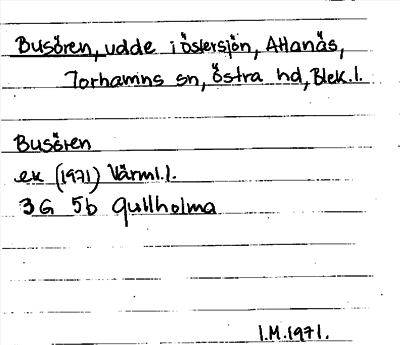 Busören, udde i Östersjön, Attanäs,
Torhamns sn, Östra hd, Blek. l.
Busören
ek (1971) Värml. l.
3G 5b Gullholma
I.M. 1971.